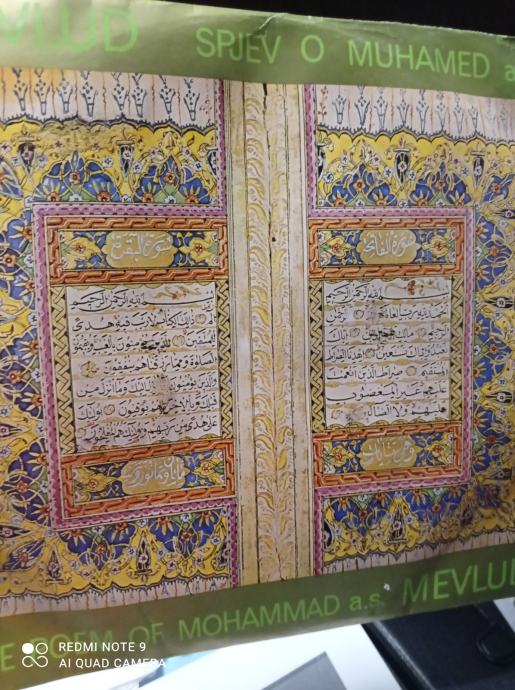 VLUD SPJEV O MUHAMED a
سورة الفاتحة
بسم الله الرحمن الرحيم
الحمد لله رب العالمين الرحمن
الرحيم مالك يوم الدين اياك
نعبد واياك نستعين اهدنا الصراط
المستقيم صراط الذين انعمت
عليهم غير المغضوب
عليهم ولا الضالين
سورة البقرة
بسم الله الرحمن الرحيم
الم ذلك الكتاب لا ريب فيه هدى
للمتقين الذين يؤمنون بالغيب ويقيمون
الصلوة ومما رزقناهم ينفقون
والذين يؤمنون بما انزل اليك وما انزل من
قبلك وبالاخرة هم يوقنون اولئك
على هدى من ربهم واولئك هم المفلحون
E POEM OF MOHAMMAD a.s. MEVLUD
REDMI NOTE 9
AI QUAD CAMERA